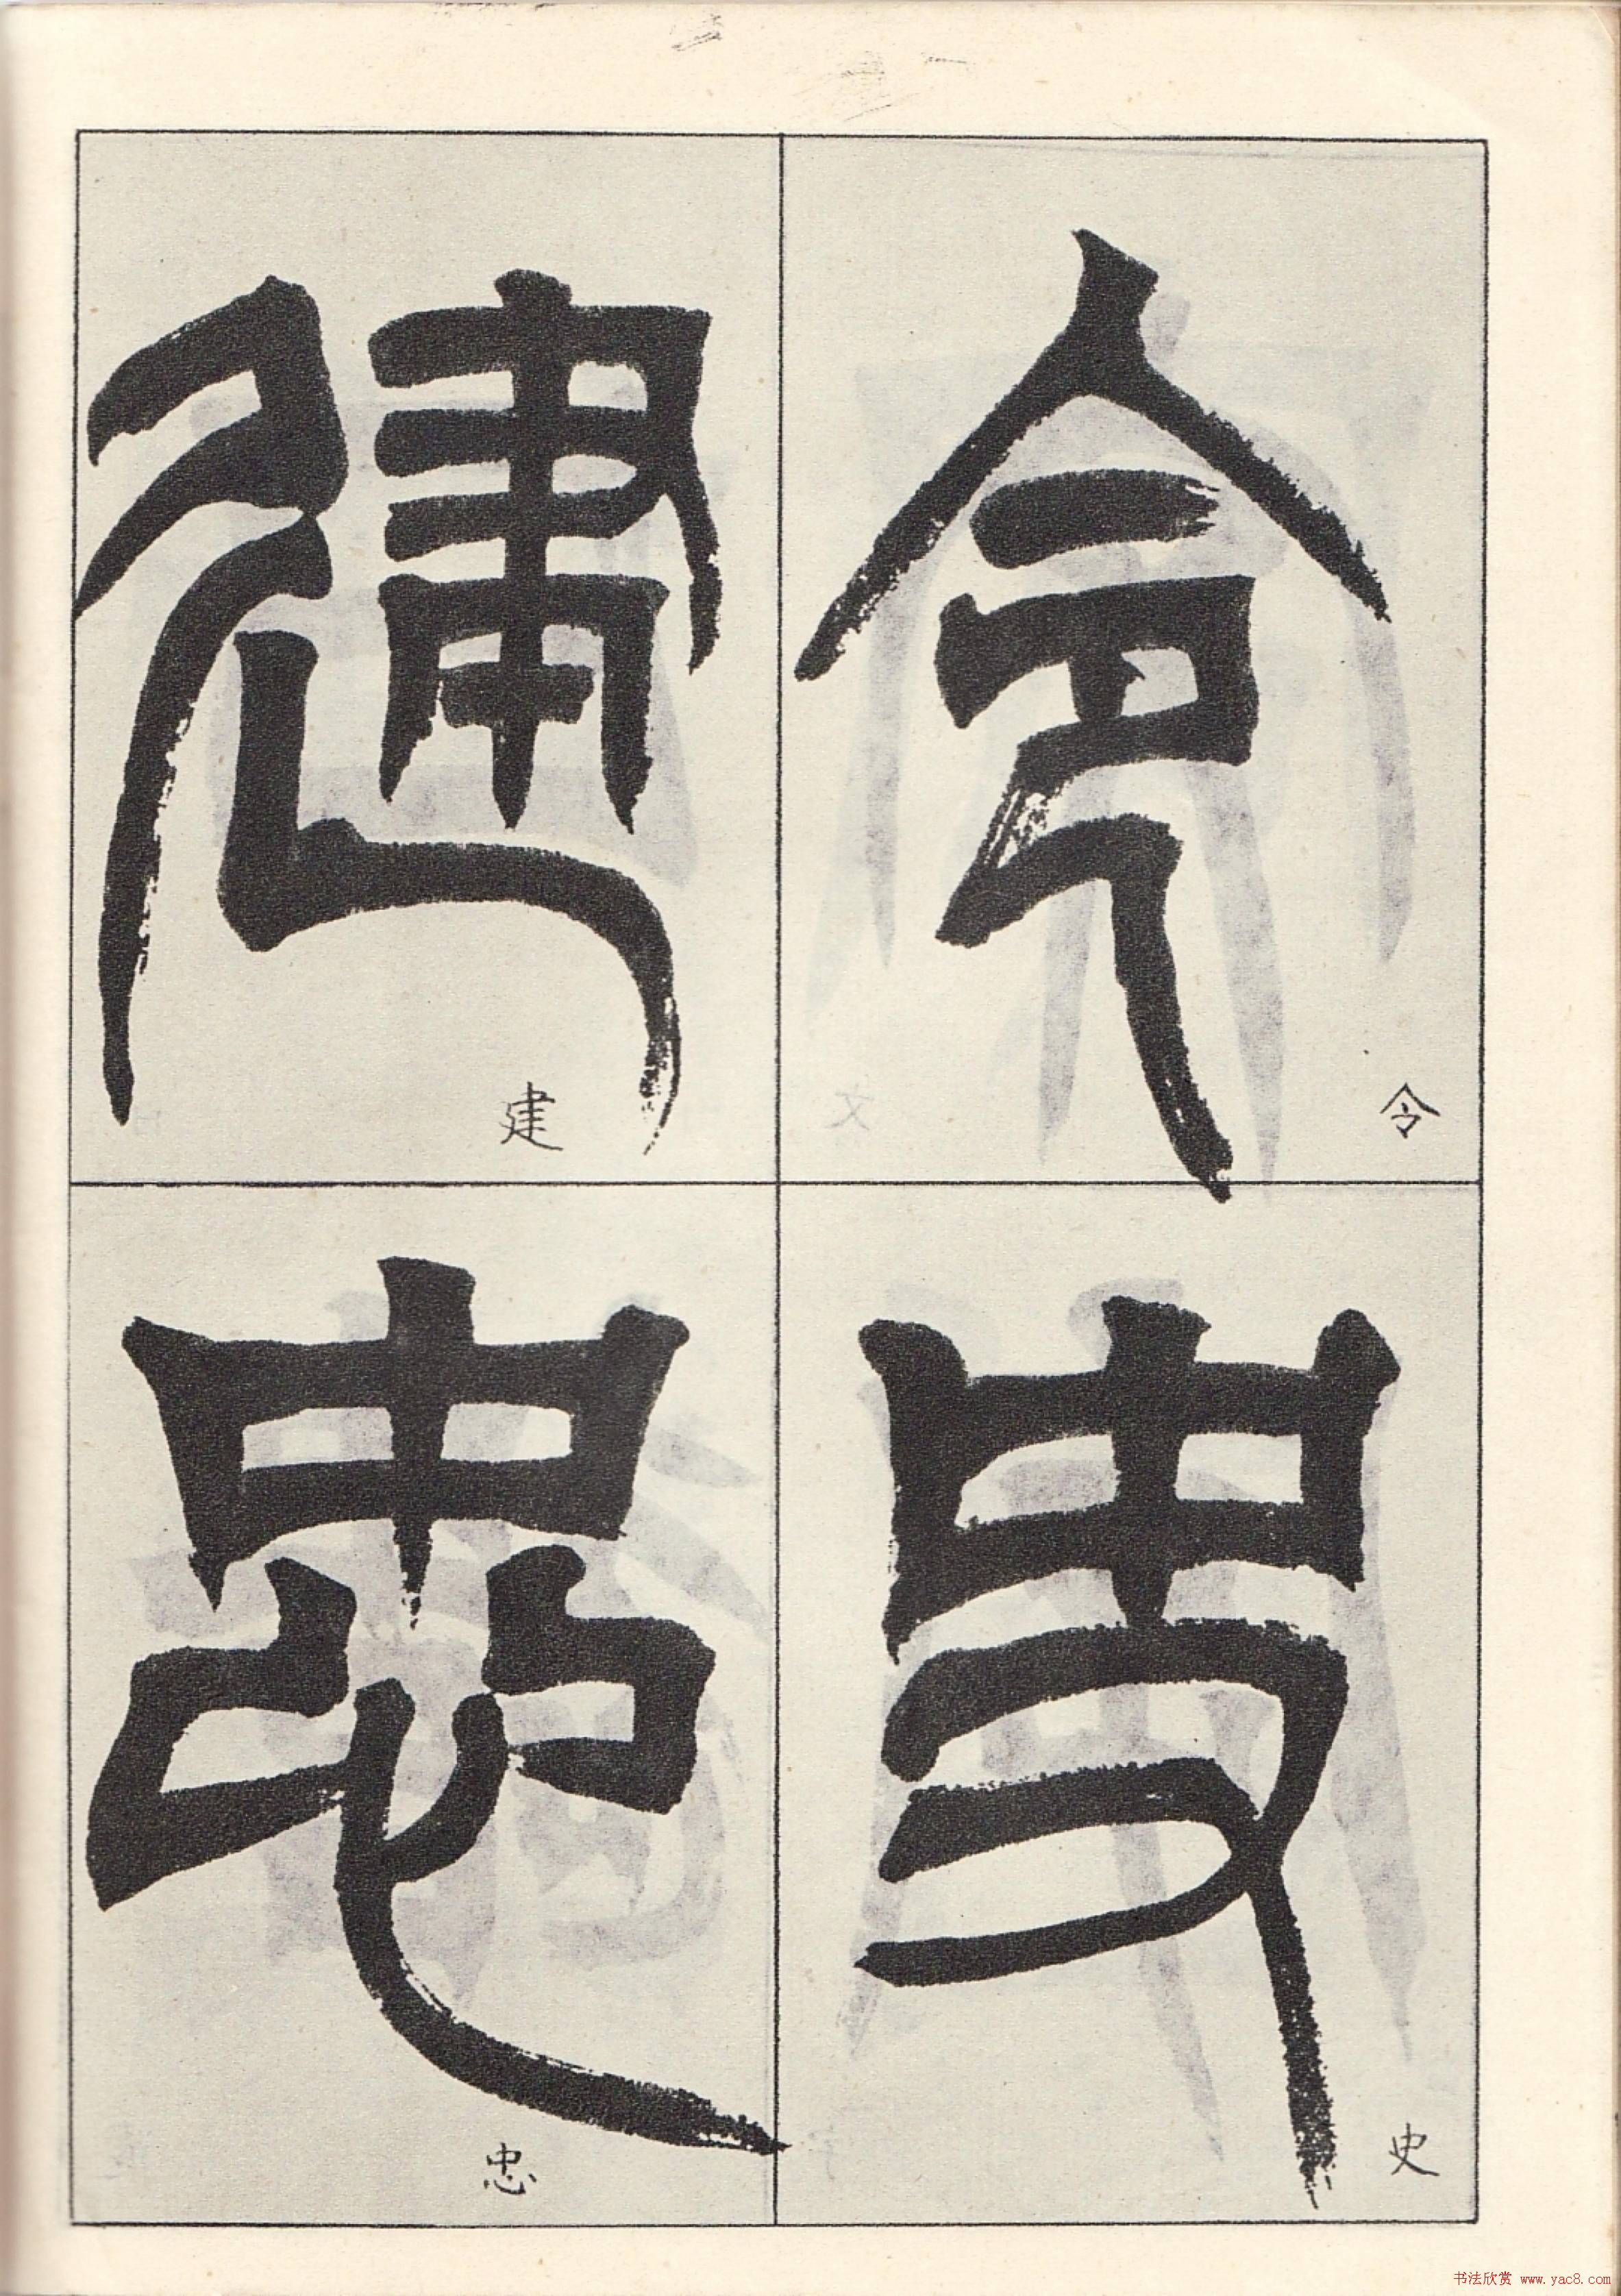 令
令
史
史
建
建
忠
忠
书法欣赏 www.yac8.com